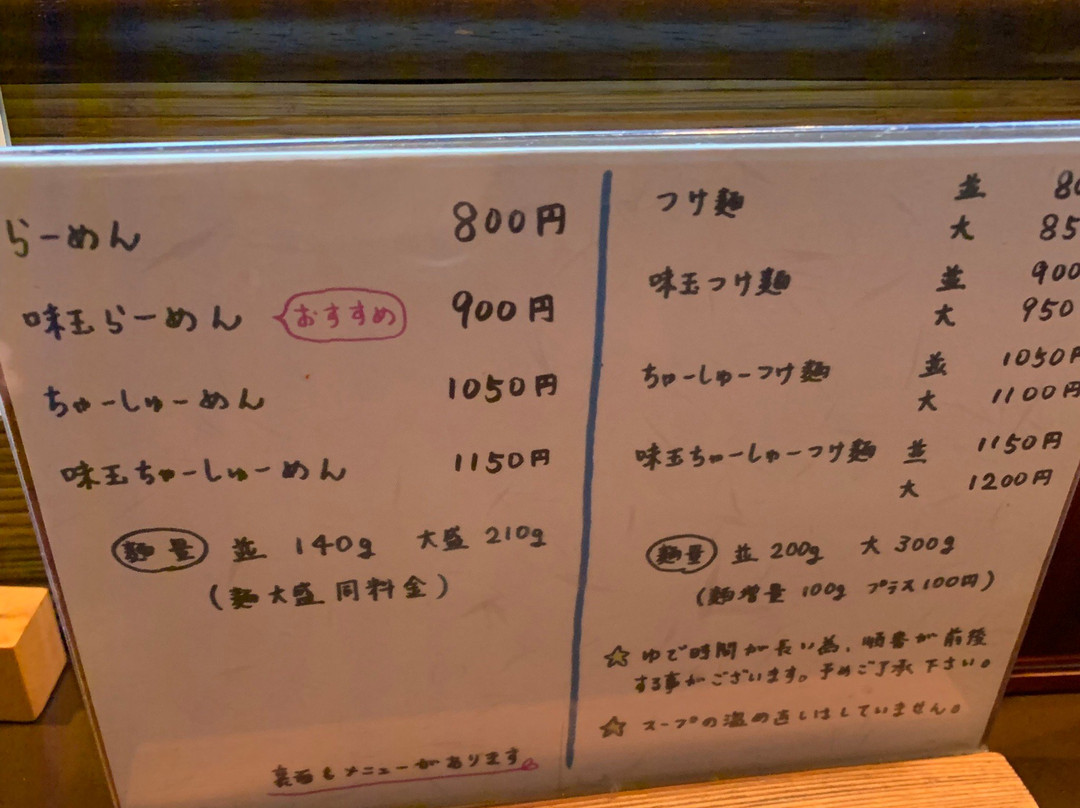 らーめん 800円
味玉らーめん おすすめ 900円
ちゃーしゅーめん 1050円
味玉ちゃーしゅーめん 1150円
麺量 並 140g 大盛 210g
(麺大盛同料金)
裏面もメニューがあります
つけ麺 並 80
大 85
味玉つけ麺 並 900
大 950
ちゃーしゅーつけ麺 並 1050円
大 1100円
味玉ちゃーしゅーつけ麺 並 1150円
大 1200円
麺量 並 200g 大 300g
(麺増量 100g プラス100円)
☆ ゆで時間が長い為、順番が前後
する事がございます。予めご了承下さい。
☆ スープの温め直しはしていません。